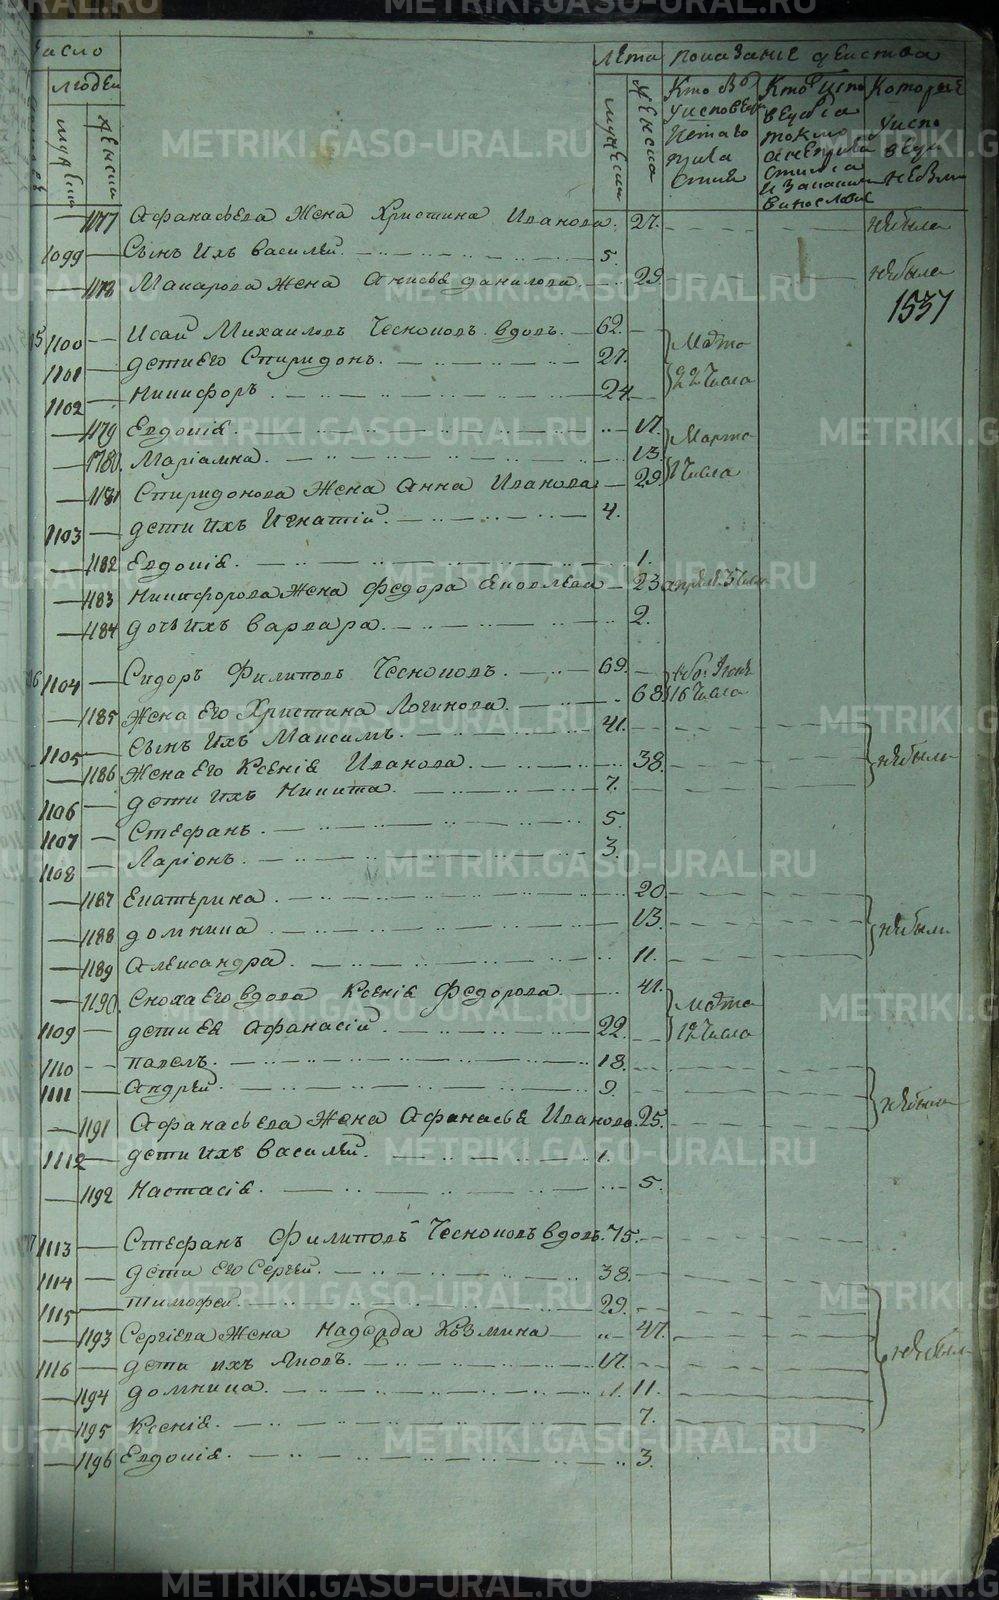 число
людей
мужеска
женска
лета
мужеска
женска
показание действа
Кто Был
у исповеди
и стаго
прича
стия
Кто исло
ведался
токмо
а не прича
стился
и за каким
винословие
Которые
у испо
веди
не были
1177 Афанасьева Жена Христина Иванова. 27. не была
1099 Сынъ ихъ василей. 5
1178 Макарова Жена Анисья данилова. 29 не была
1537
15 1100 Исаи Михаиловъ Чесноковъ вдовъ. 62. Марта
1101 дети Его Спиридонъ. 27. 22 Числа
1102 Никифоръ 24
1179 Евдокія 17. Марта
1180. Маріамна. 13. 1 Числа
1181 Спиридонова Жена Анна Иванова 29
1103 дети ихъ Игнатій. 4.
1182 Евдокія. 1.
1183 Никифорова Жена Федора Яковлева 23 апреля 3 числа
1184 дочь ихъ варвара. 2.
16 1104 Сидоръ Филиповъ Чесноковъ. 69.
1185 Жена Его Христина Логинова. 68 16 Числа
1105 Сынъ ихъ Максимъ. 41.
1186 Жена Его Ксенія Иванова. 38. не были
1106 дети ихъ Никита. 7.
1107 Стефанъ. 5
1108 Ларіонъ. 3
1187 Екатерина 20
1188 домника 13. не были
1189 Александра. 11.
1190. Сноха Его вдова Ксенія Федорова. 41. Марта
1109 дети Ея Афанасій. 22. 12 Числа
1110 павелъ. 18.
1111 Андрей. 9 не были
1191 Афанасьева Жена Афанасья Иванова. 25.
1112 дети ихъ василей. 1.
1192 Настасія. 5.
17 1113 Стефанъ Филиповъ Чесноковъ вдовъ. 75.
1114 дети Его Сергей. 38.
1115 тимофей. 29.
1193 Сергіева Жена Надежда Козмина 47.
1116 дети ихъ Яковъ. 17. не были
1194 домника. 11.
1195 Ксенія. 7.
1196 Евдокія. 3.
METRIKI.GASO-URAL.RU